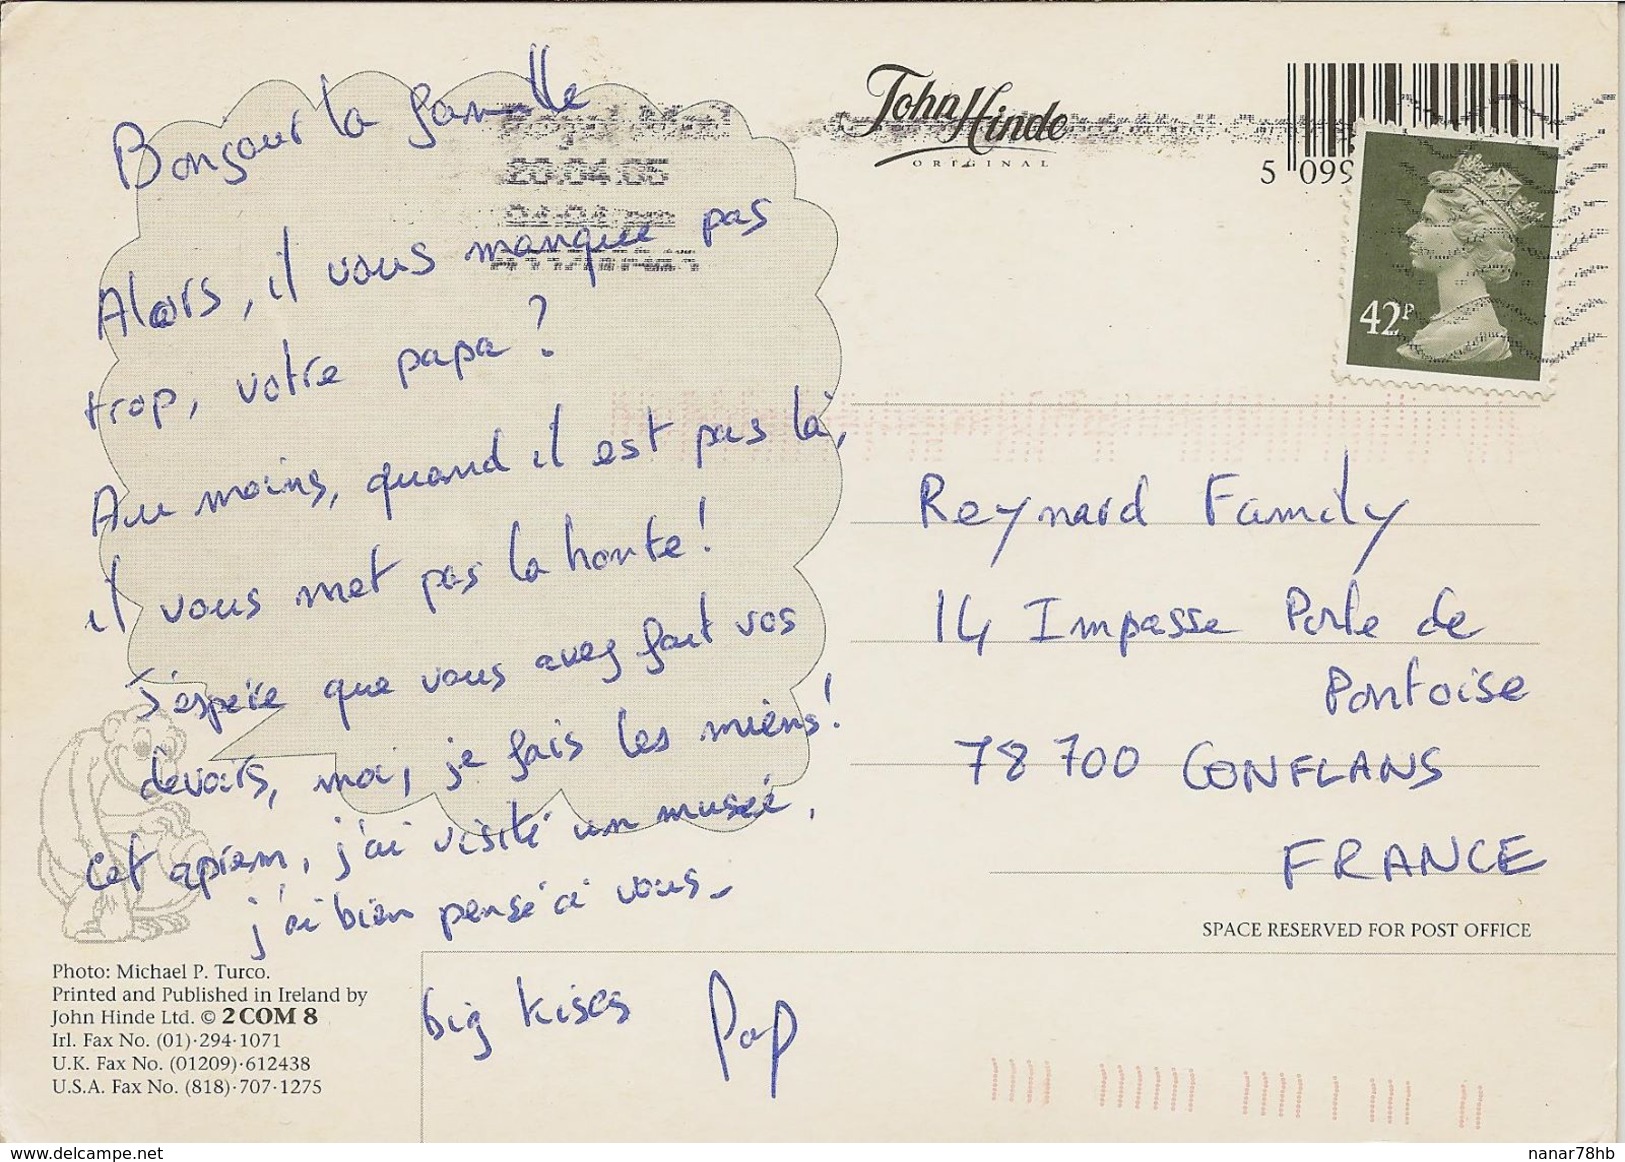 Bonjour la famille
Alors, il vous manque pas
trop, votre papa ?
Au moins, quand il est pas là,
il vous met pas la honte !
J'espère que vous avez fait vos
devoirs, moi, je fais les miens !
cet aprèm, j'ai visité un musée,
j'ai bien pensé à vous.
big kises Pap
Photo: Michael P. Turco.
Printed and Published in Ireland by
John Hinde Ltd. © 2COM 8
Irl. Fax No. (01)·294·1071
U.K. Fax No. (01209)·612438
U.S.A. Fax No. (818)·707·1275
Royal Mail
20.04.05
04:04 pm
John Hinde
ORIGINAL
5 099
42P
Reynard Family
14 Impasse Porte de
Pontoise
78 700 CONFLANS
FRANCE
SPACE RESERVED FOR POST OFFICE
www.delcampe.net
nanar78hb